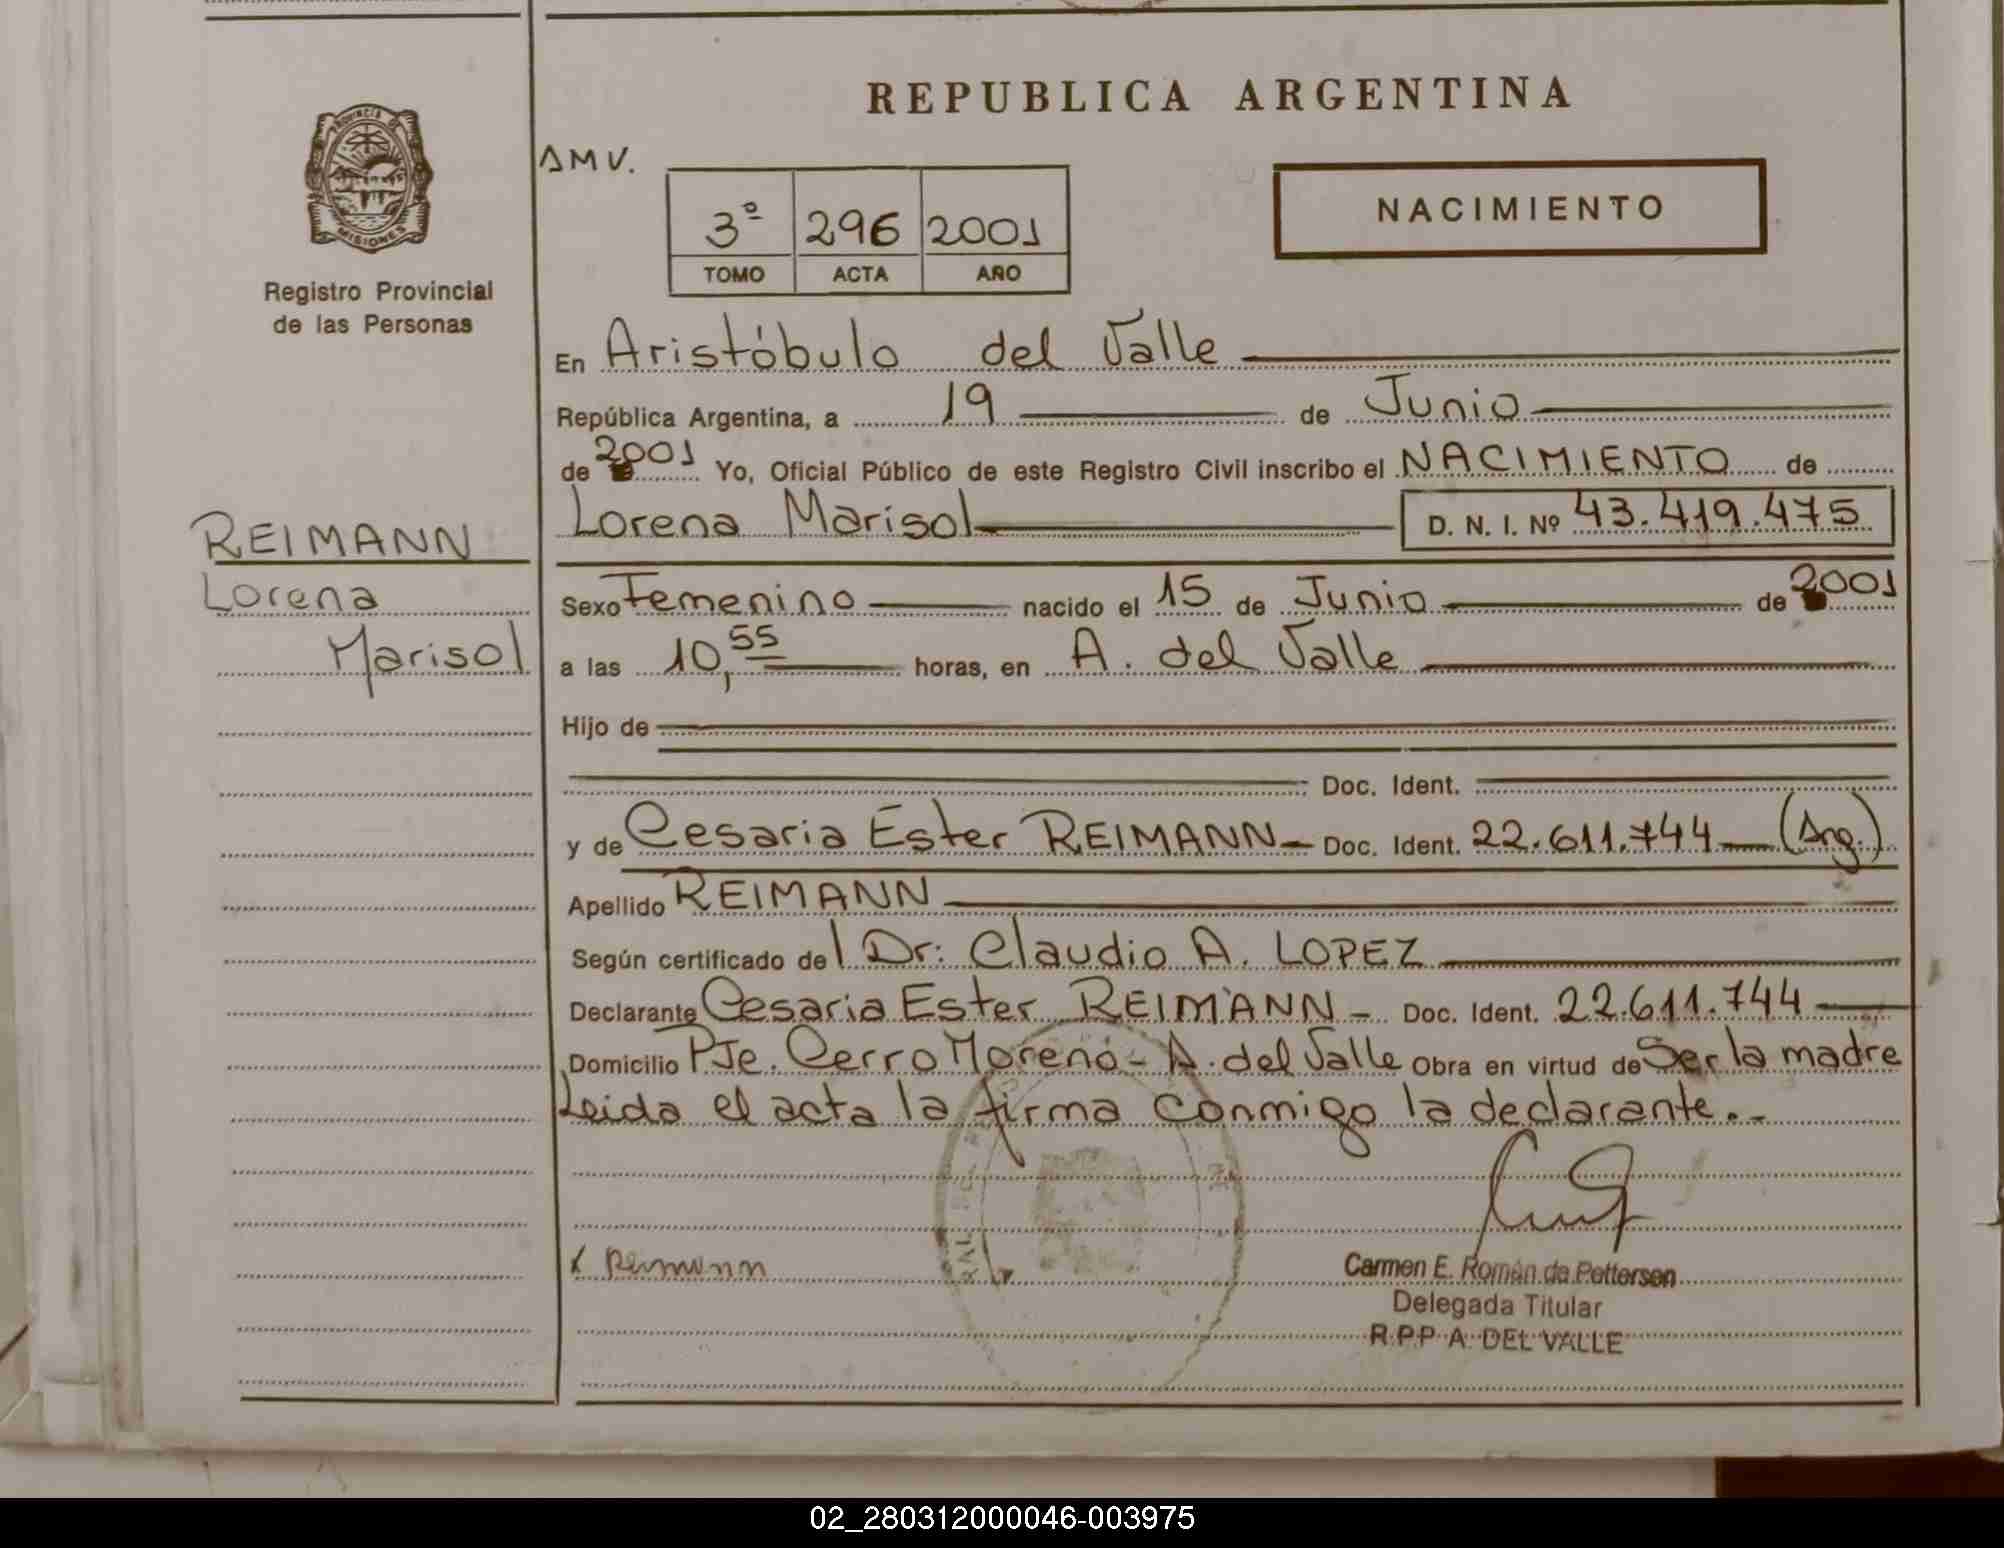 REPUBLICA ARGENTINA
PROVINCIA DE
MISIONES
Registro Provincial
de las Personas
AMV.
3º 296 2001
TOMO ACTA AÑO
NACIMIENTO
En Aristóbulo del Valle
República Argentina, a 19 de Junio
de 2001 Yo, Oficial Público de este Registro Civil inscribo el NACIMIENTO de
Lorena Marisol D. N. I. Nº 43.419.475
REIMANN
Lorena
Marisol
Sexo Femenino nacido el 15 de Junio de 2001
a las 10,55 horas, en A. del Valle
Hijo de
Doc. Ident.
y de Cesaria Ester REIMANN- Doc. Ident. 22.611.744 (Arg.)
Apellido REIMANN
Según certificado del Dr: Claudio A. LOPEZ
Declarante Cesaria Ester REIMANN - Doc. Ident. 22.611.744
Domicilio PJe. Cerro Moreno - A. del Valle Obra en virtud de Ser la madre
Leida el acta la firma conmigo la declarante.-
x Reimann
Carmen E. Román de Pettersen
Delegada Titular
R.P.P A. DEL VALLE
02_280312000046-003975